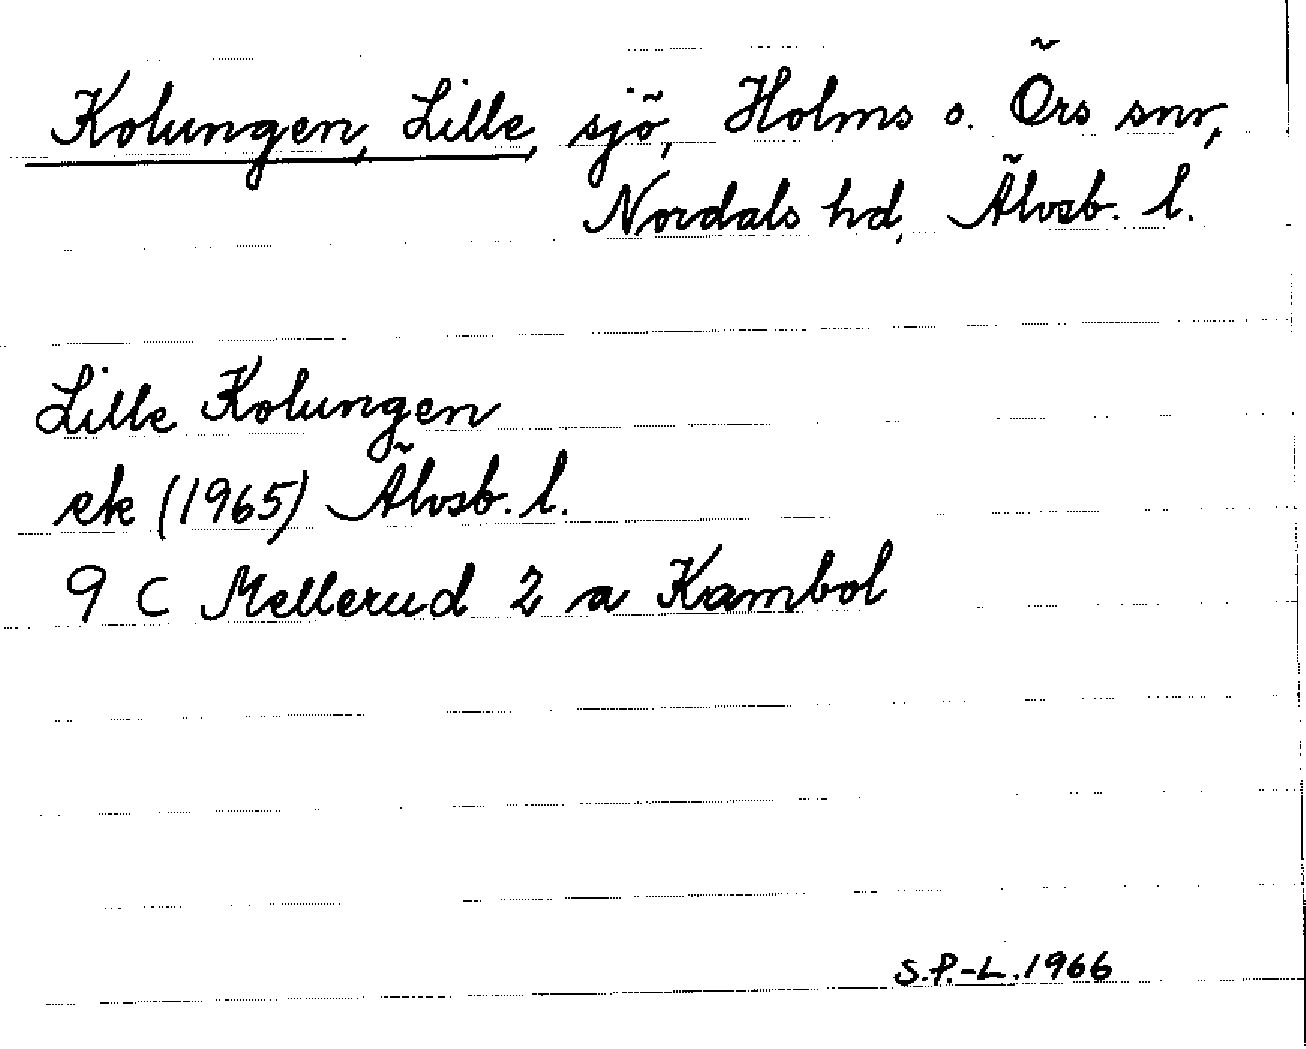 Kolungen, Lille, sjö, Holms o. Örs snr,
Nordals hd, Älvsb. l.
Lille Kolungen
ek (1965) Älvsb. l.
9 C Mellerud 2 a Kambol
S.P.-L. 1966